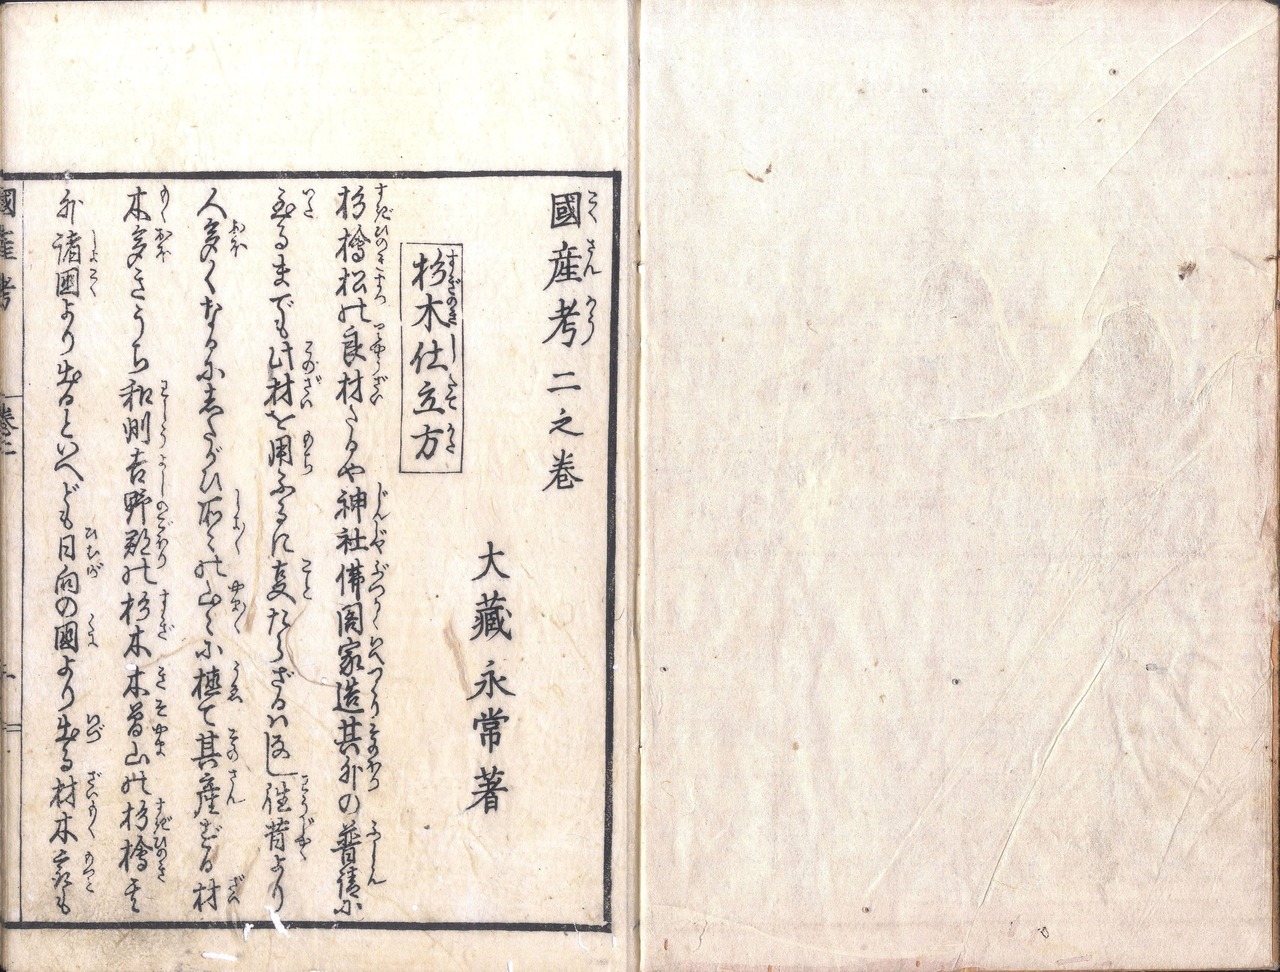 國産考二之巻
大藏永常著
杉木仕立方
杉檜松の良材たるや神社佛閣家造其外の普請に
至るまでも此材を用ふるに事たらざるハなし往昔より
人多くなるにしたがひ所〻の山〻に植て其産ずる材
木多きうち和州吉野郡の杉木木曽山の杉檜其
外諸國より出るといへども日向の國より出る材木尤も
國産考 巻二